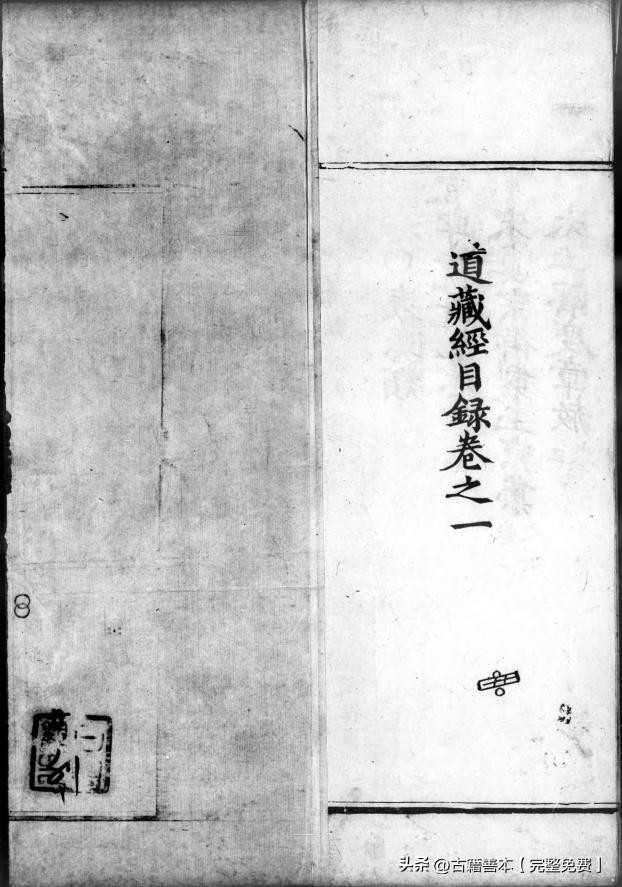 道藏經目録卷之一
头条 @古籍善本【完整免费】